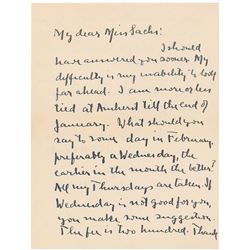 My dear Miss Sachs:
I should
have answered you sooner. My
difficulty is my inability to look
far ahead. I am more or less
tied at Amherst till the end of
January. What should you
say to some day in February,
preferably a Wednesday, the
earlier in the month the better?
All my Thursdays are taken. If
Wednesday is not good for you,
you make some suggestion.
The fee is two hundred. Thank